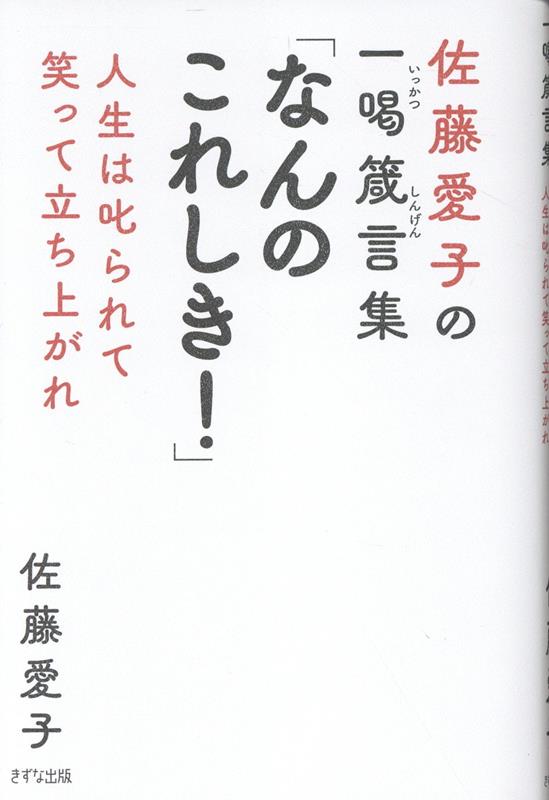 佐藤愛子の
一喝箴言集
いっかつ
しんげん
「なんの
これしき！」
人生は叱られて
笑って立ち上がれ
佐藤愛子
きずな出版
一喝箴言集
人生は叱られて笑って立ち上がれ